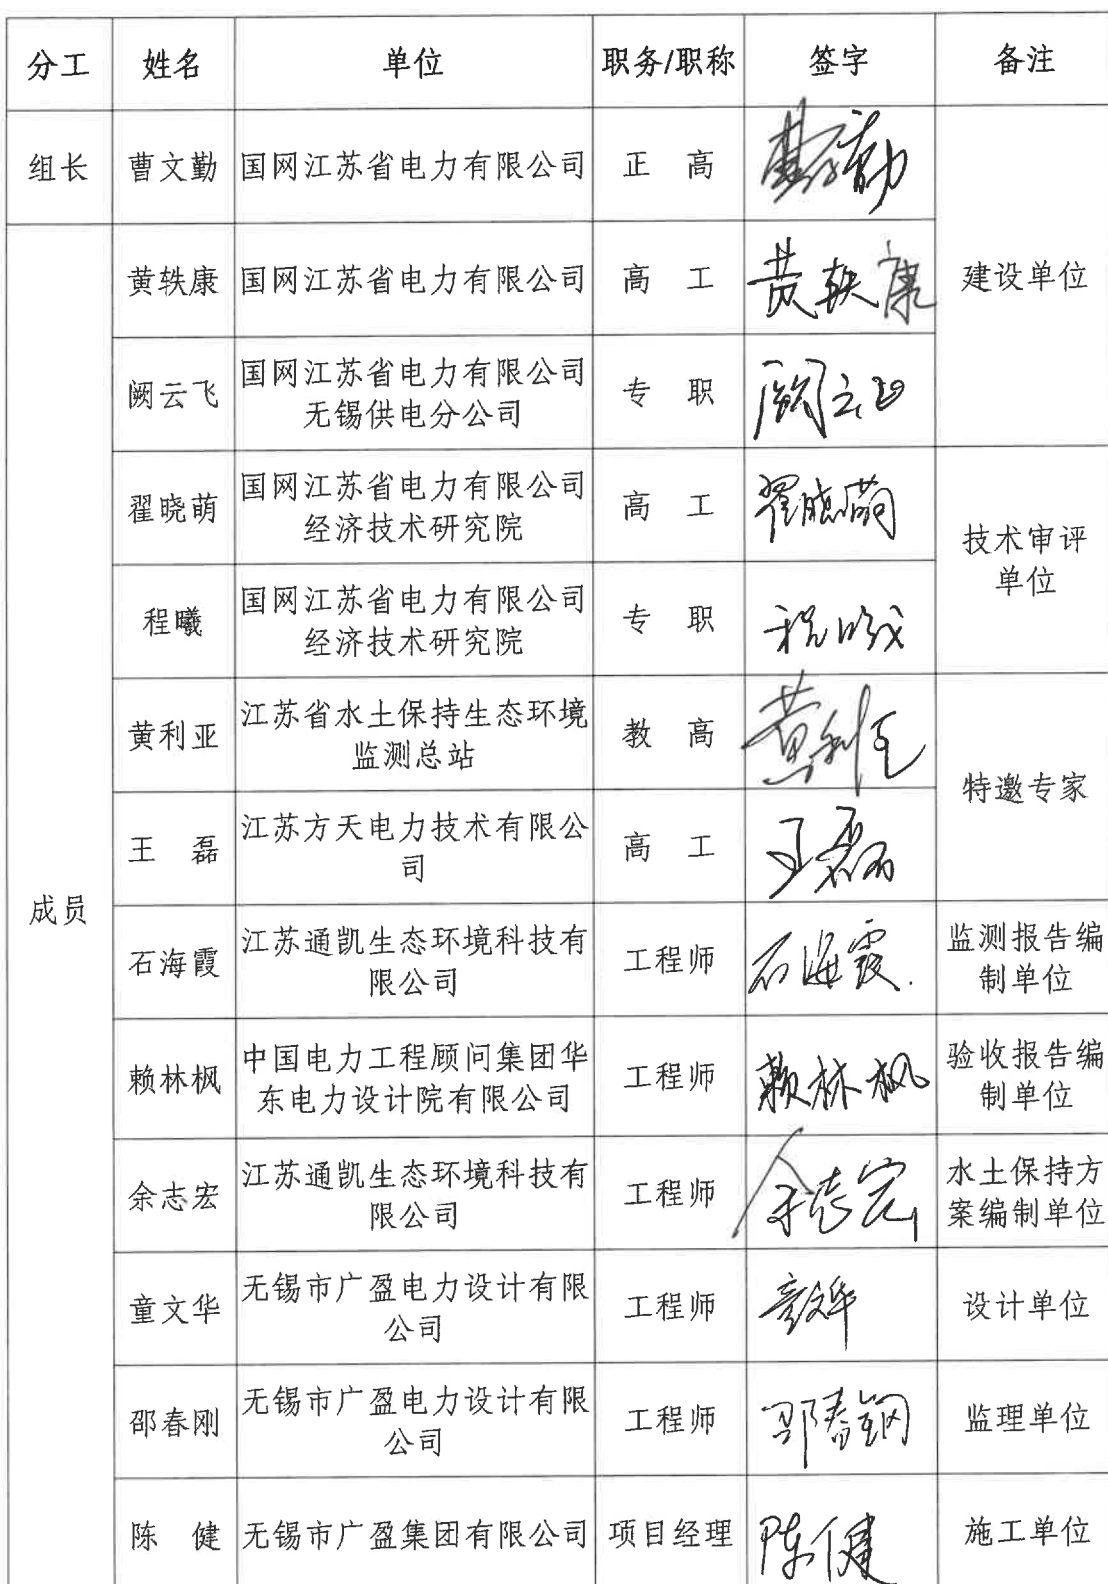 分工 姓名 单位 职务/职称 签字 备注
组长 曹文勤 国网江苏省电力有限公司 正 高 曹文勤 建设单位
成员 黄轶康 国网江苏省电力有限公司 高 工 黄轶康
阙云飞 国网江苏省电力有限公司
无锡供电分公司 专 职 阙云飞
翟晓萌 国网江苏省电力有限公司
经济技术研究院 高 工 翟晓萌 技术审评
单位
程曦 国网江苏省电力有限公司
经济技术研究院 专 职 程曦
黄利亚 江苏省水土保持生态环境
监测总站 教 高 黄利亚 特邀专家
王 磊 江苏方天电力技术有限公
司 高 工 王磊
石海霞 江苏通凯生态环境科技有
限公司 工程师 石海霞 监测报告编
制单位
赖林枫 中国电力工程顾问集团华
东电力设计院有限公司 工程师 赖林枫 验收报告编
制单位
余志宏 江苏通凯生态环境科技有
限公司 工程师 余志宏 水土保持方
案编制单位
童文华 无锡市广盈电力设计有限
公司 工程师 童文华 设计单位
邵春刚 无锡市广盈电力设计有限
公司 工程师 邵春钢 监理单位
陈 健 无锡市广盈集团有限公司 项目经理 陈健 施工单位